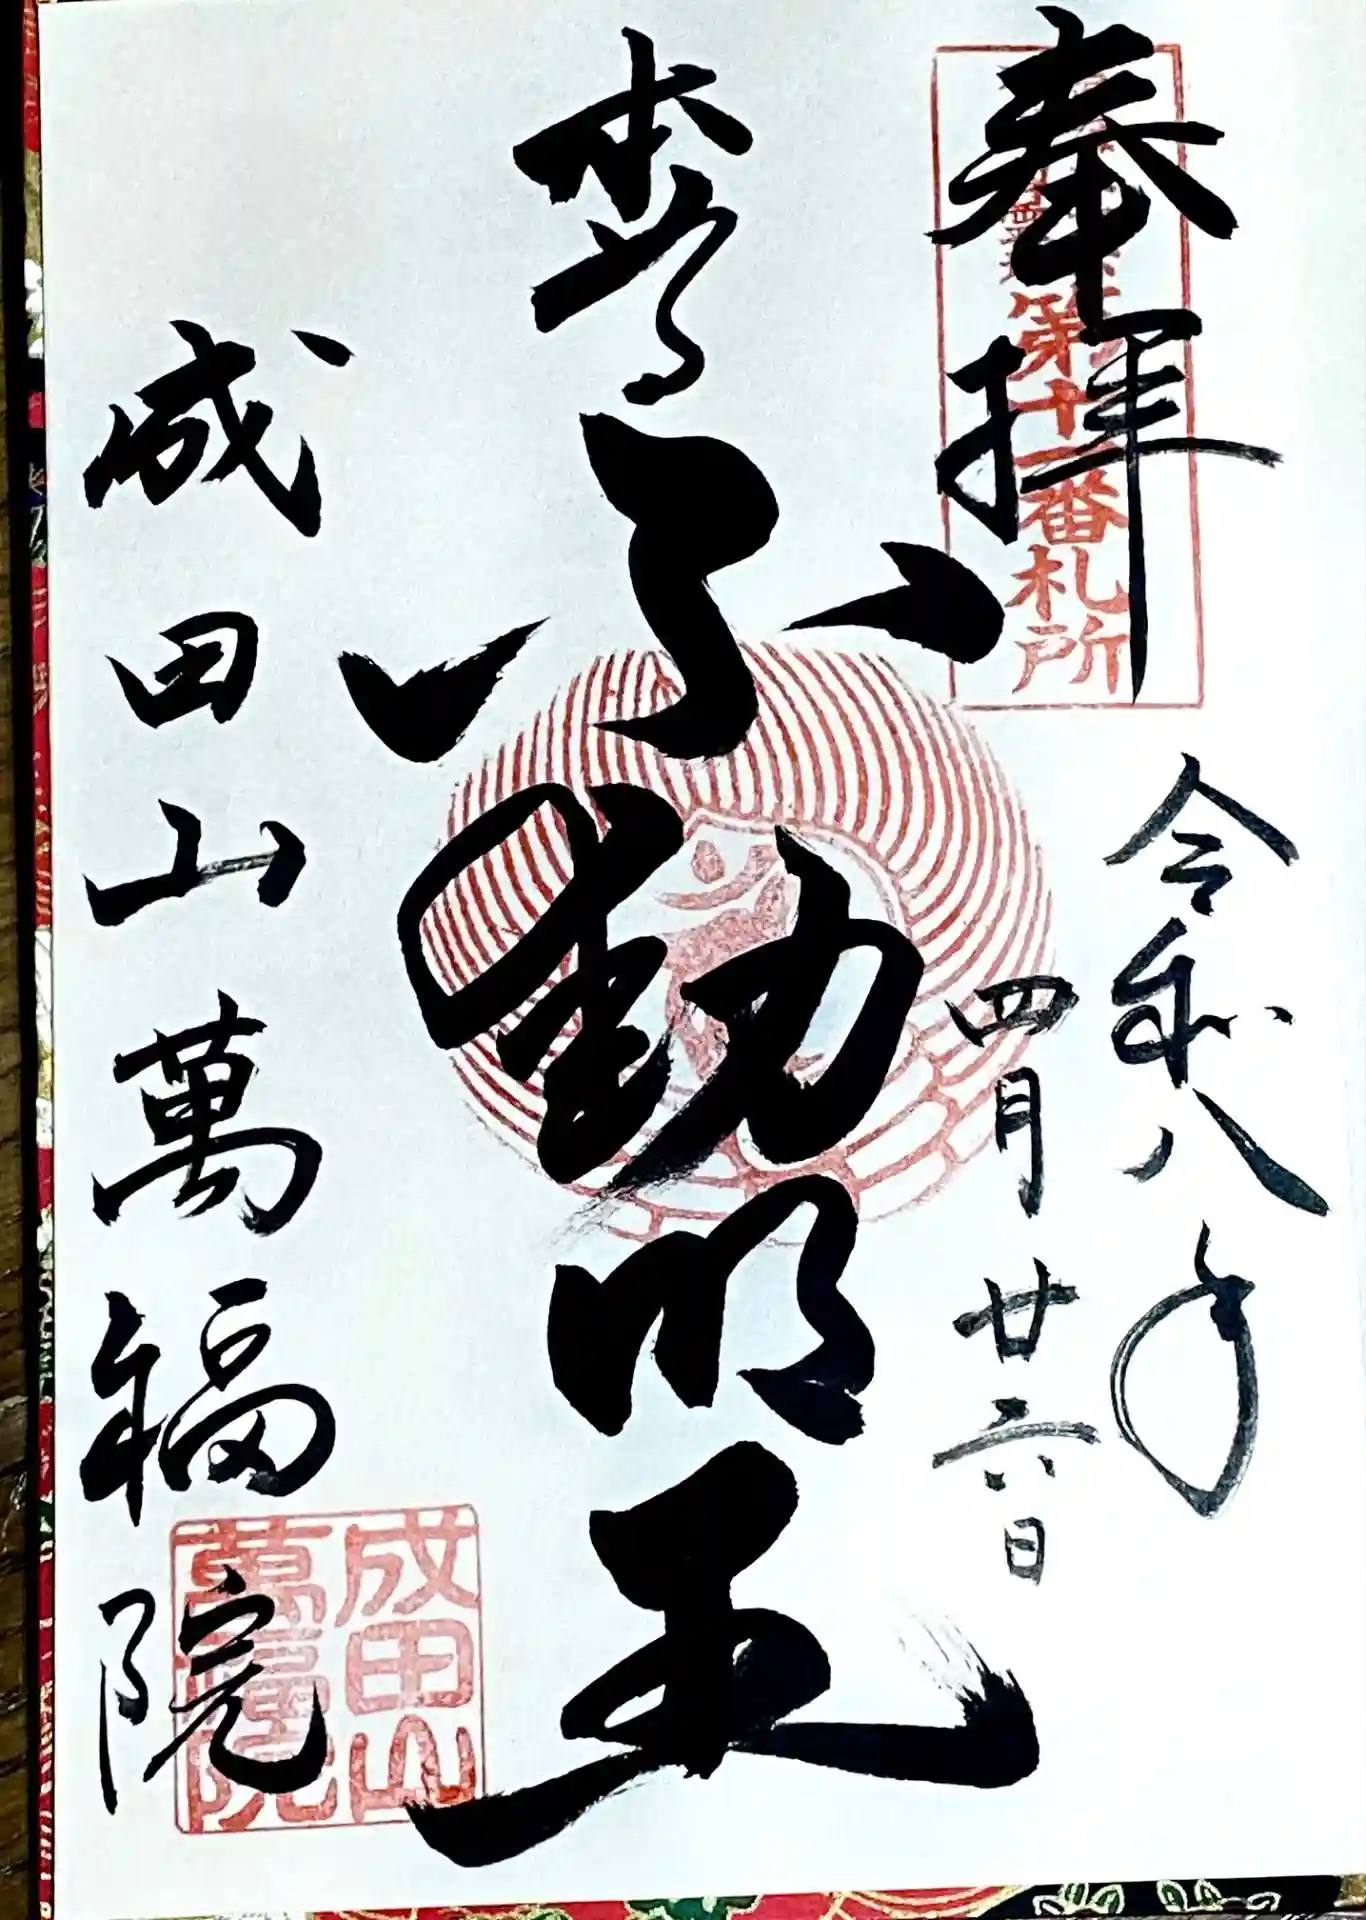 奉拝
第十二番札所
令和八年
四月廿六日
不動明王
成田山萬福院
成田山
萬福院